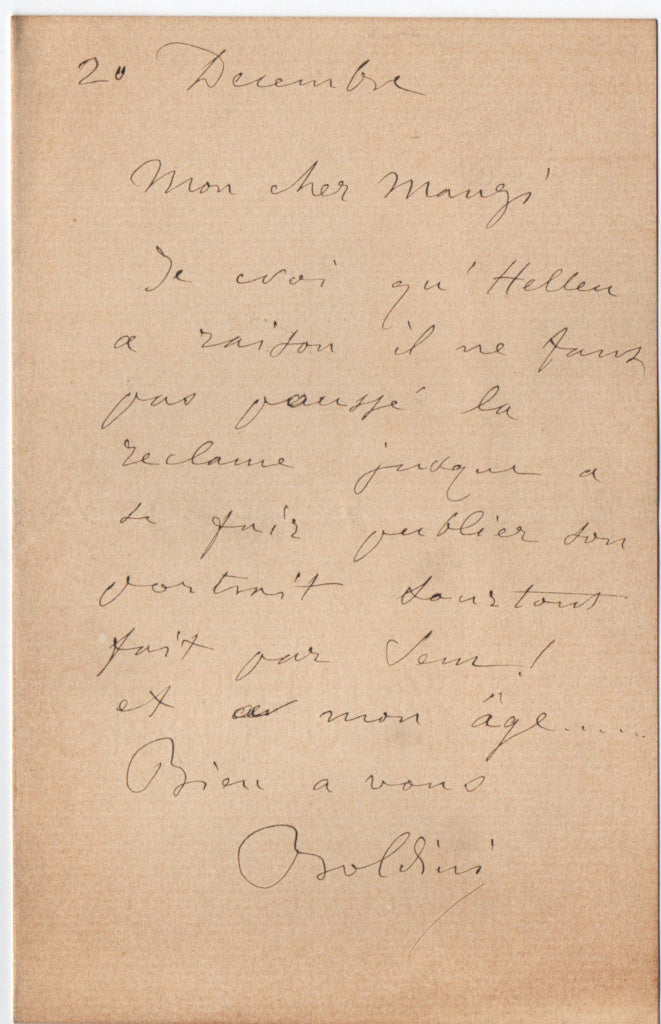 20 Decembre
Mon cher Manzi
Je croi qu'Helleu
a raison il ne faut
pas poussé la
reclame jusque a
se fair publier son
portrait sourtout
fait par Sem!
et a mon âge......
Bien a vous
Boldini